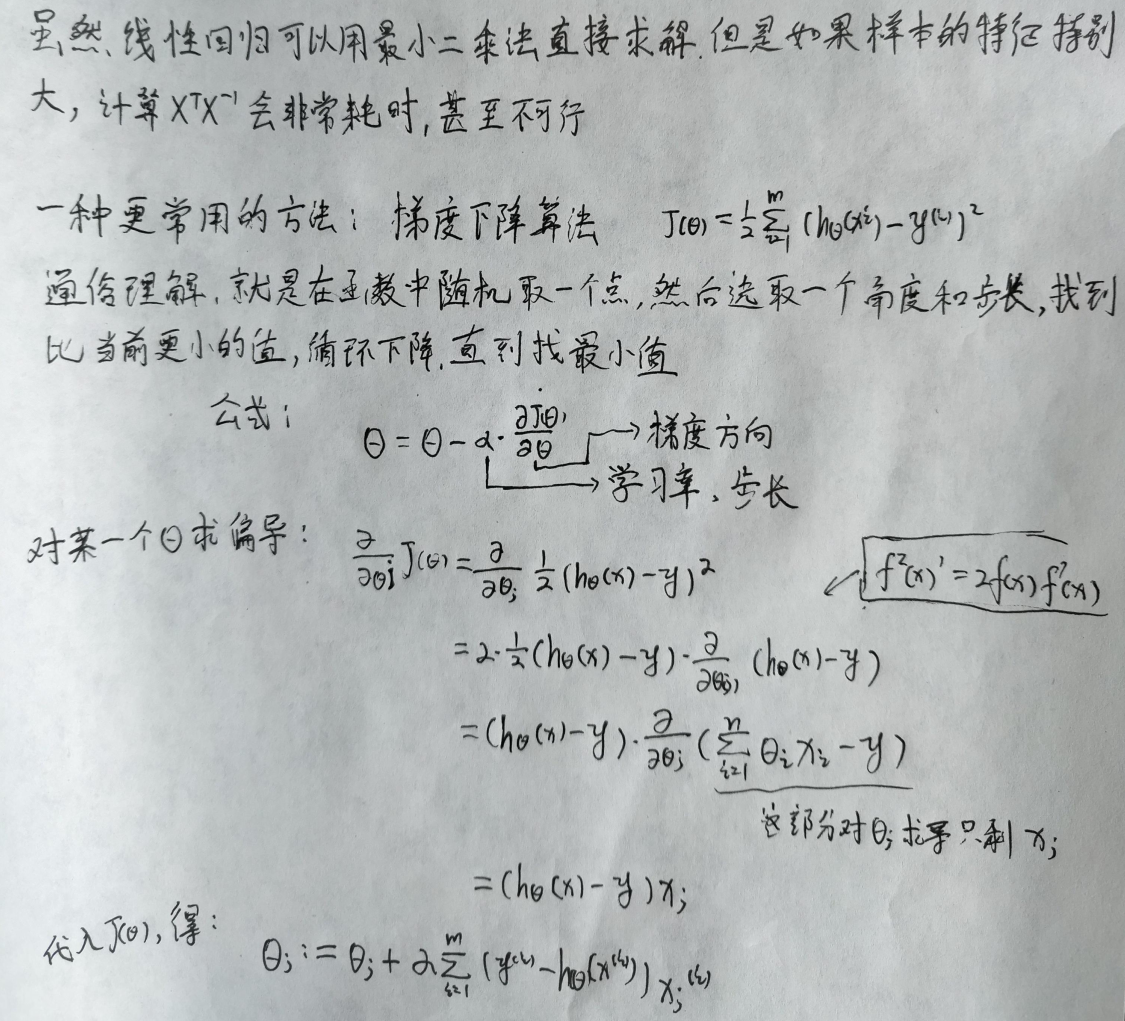 虽然,线性回归可以用最小二乘法直接求解,但是如果样本的特征特别
大,计算XᵀX⁻¹会非常耗时,甚至不可行
一种更常用的方法: 梯度下降算法 J(θ) = 1/2 Σ_{i=1}^{m} (hθ(xⁱ) - y⁽ⁱ⁾)²
通俗理解,就是在函数中随机取一个点,然后选取一个角度和步长,找到
比当前更小的值,循环下降,直到找最小值
公式: θ = θ - α · ∂J(θ)/∂θ → 梯度方向
→ 学习率、步长
对某一个θ求偏导: ∂/∂θj J(θ) = ∂/∂θj 1/2 (hθ(x) - y)² f²(x)' = 2f(x)f'(x)
= 2·1/2 (hθ(x) - y) · ∂/∂θj (hθ(x) - y)
= (hθ(x) - y) · ∂/∂θj (Σ_{i=1}^{n} θi xi - y)
这部分对θj求导只剩xj
= (hθ(x) - y) xj
代入J(θ),得: θj := θj + α Σ_{i=1}^{m} (y⁽ⁱ⁾ - hθ(x⁽ⁱ⁾)) xj⁽ⁱ⁾